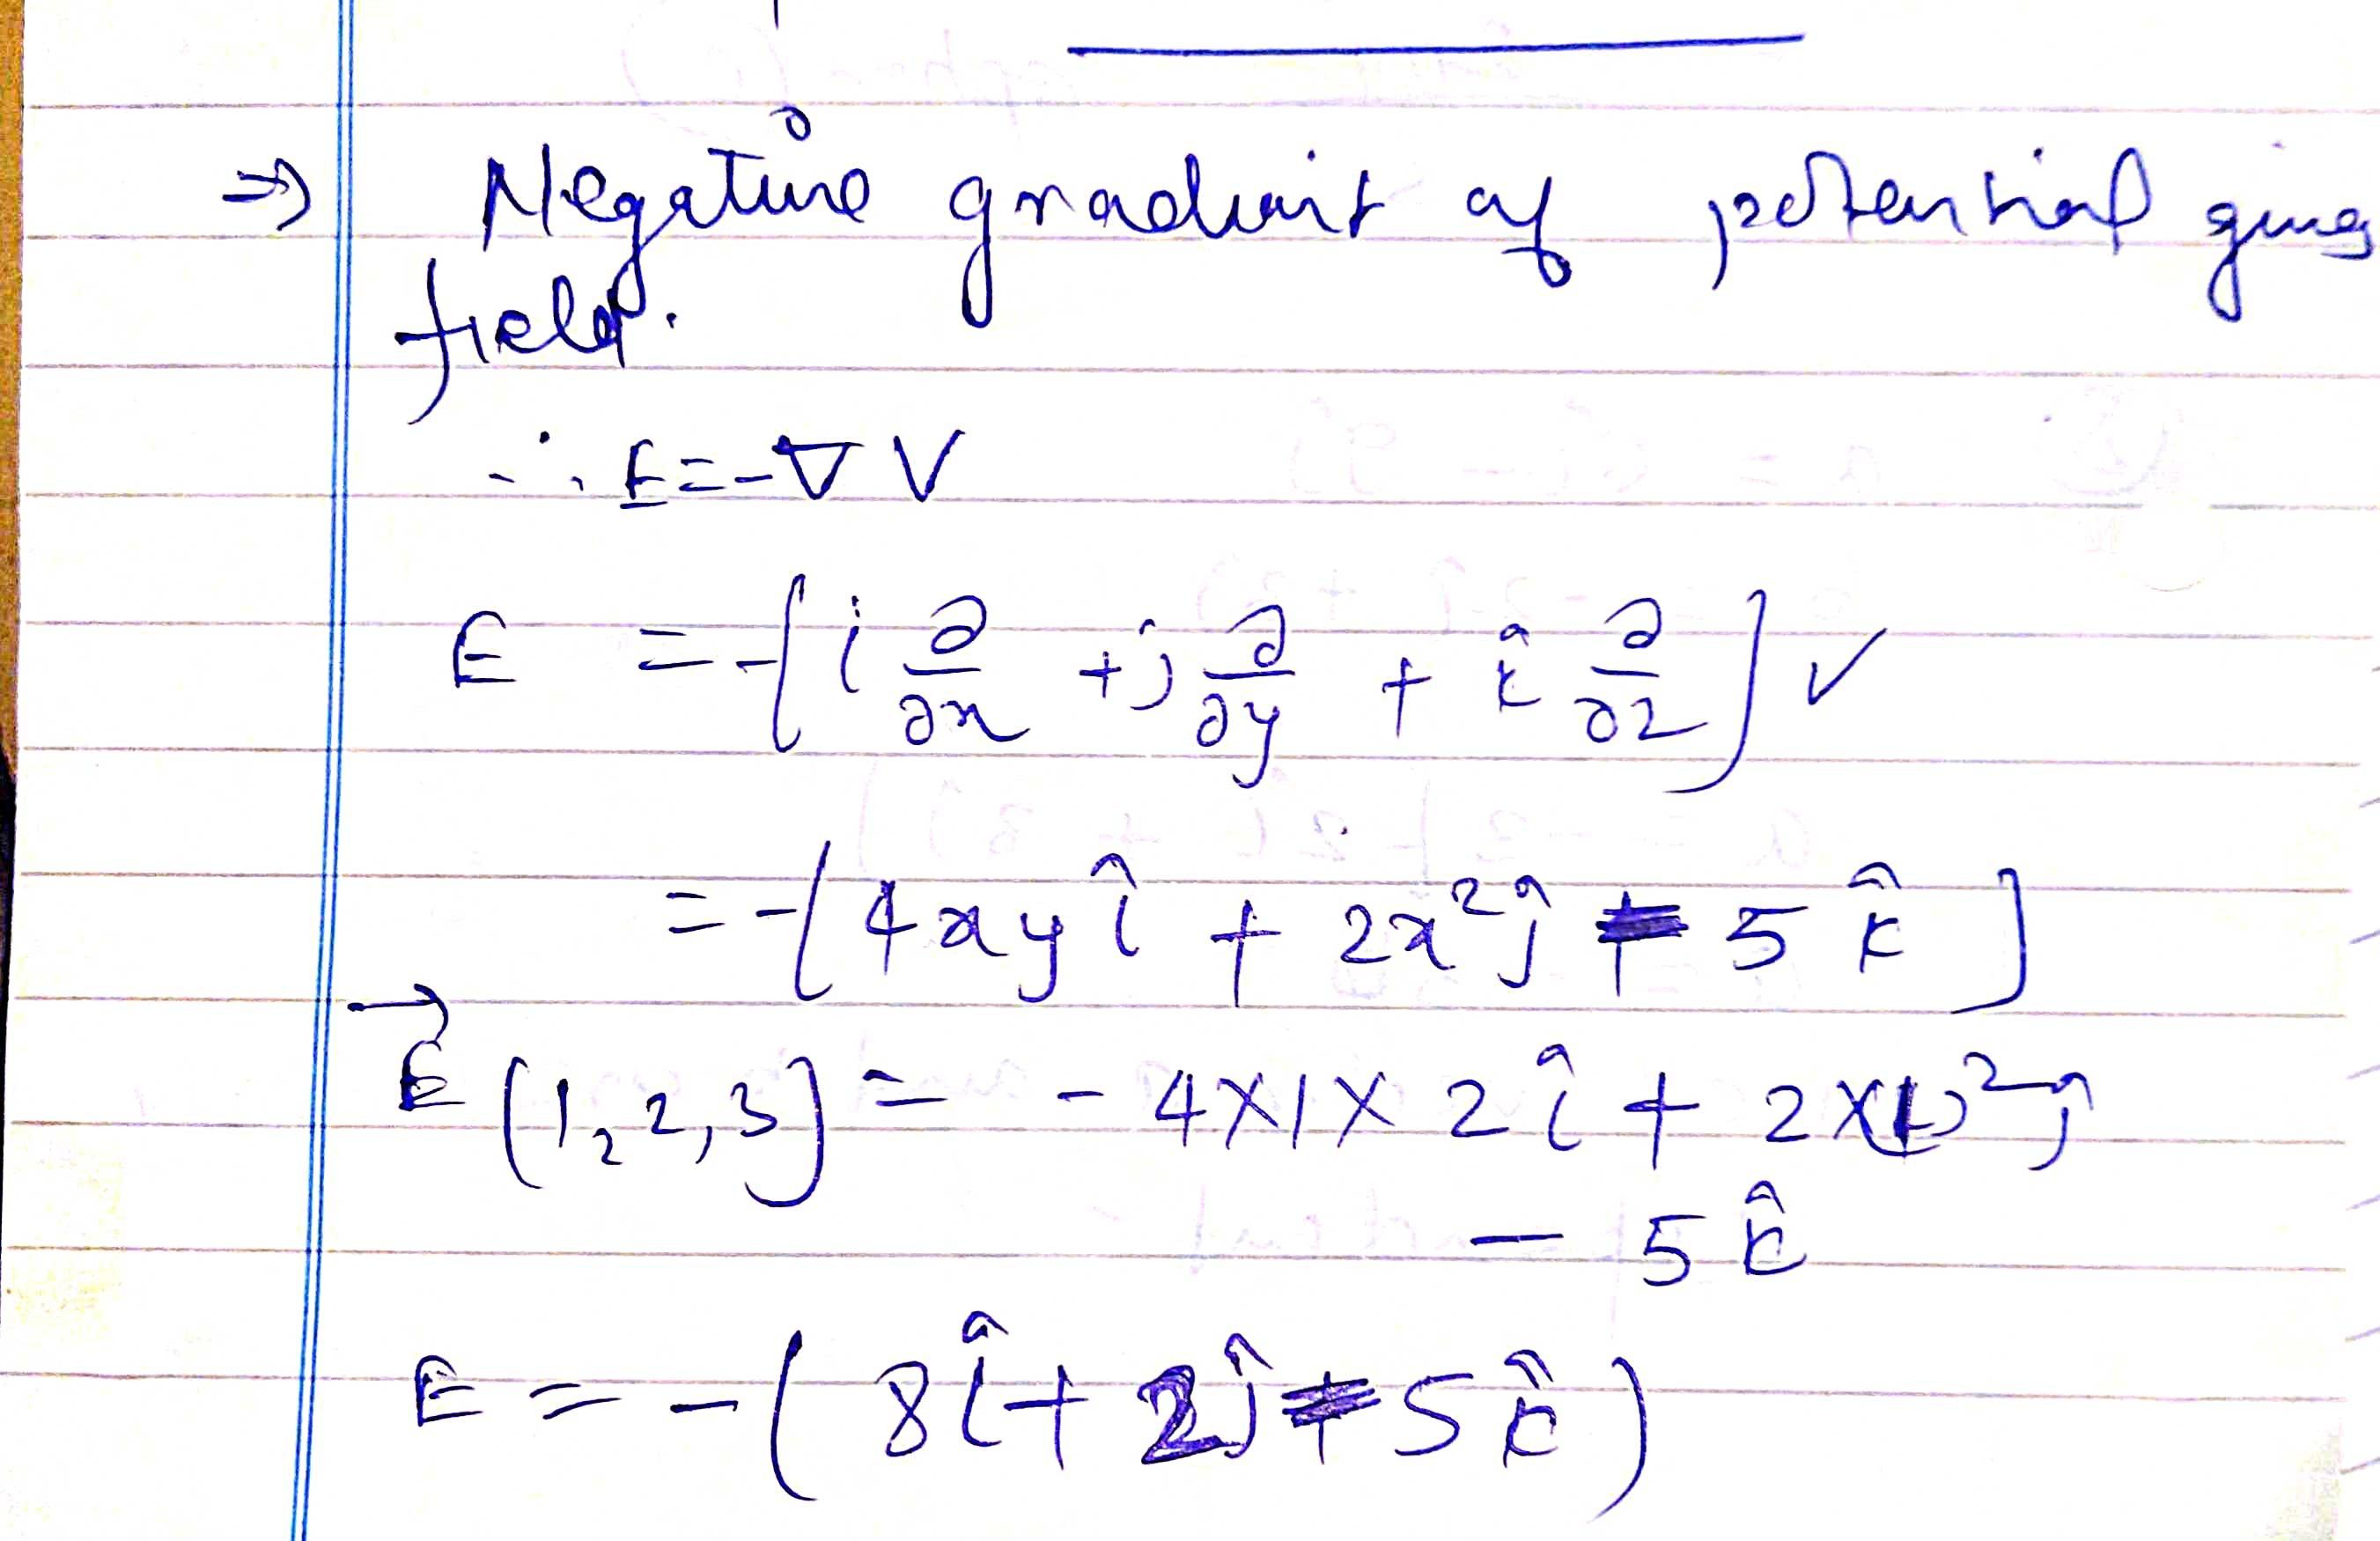 ⇒ Negative gradient of potential gives
field.
∴ E = -∇ V
E = -[i ∂/∂x + j ∂/∂y + k̂ ∂/∂z] V
= -[4xy î + 2x² ĵ + 5 k̂]
E⃗ (1, 2, 3) = - 4×1×2 î + 2×(1)² ĵ
- 5 k̂
E = -(8î + 2ĵ + 5 k̂)